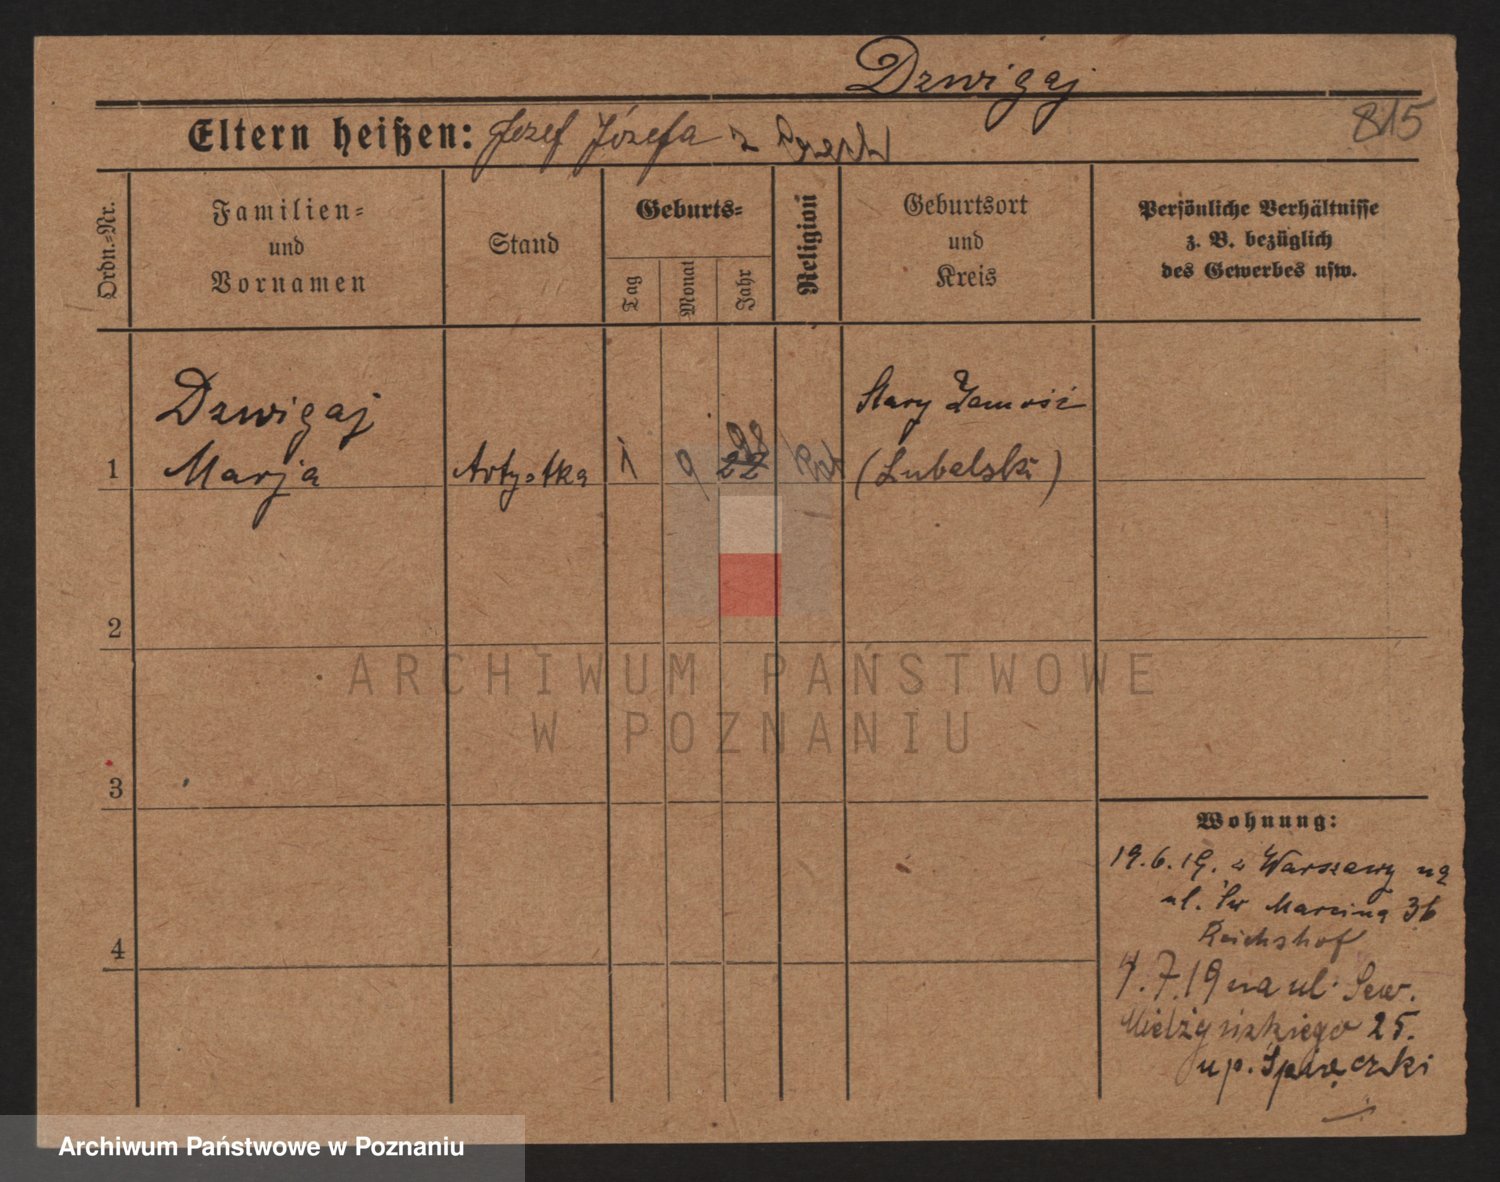 Dzwigaj
815
Eltern heißen: Józef Józefa z
Ordn.-Nr.
Familien-
und
Vornamen
Stand
Geburts-
Tag
Monat
Jahr
Religion
Geburtsort
und
Kreis
Persönliche Verhältnisse
z. B. bezüglich
des Gewerbes usw.
Dzwigaj
Marja
Artystka
1
9
98
22
Stary Zamość
(Lubelski)
1
2
3
4
ARCHIWUM PAŃSTWOWE
W POZNANIU
Wohnung:
19.6.19. z Warszawy na
ul. Św Marcina 36
Reichshof
4.7.19 na ul. Sew.
Mielżyńskiego 25.
u p.
Archiwum Państwowe w Poznaniu